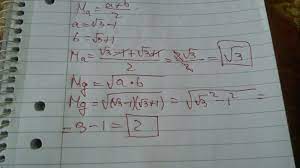 Ma = a+b/2
a = √3-1
b = √3+1
Ma = √3-1+√3+1/2 = 2√3/2 = √3
Mg = √a·b
Mg = √(√3-1)(√3+1) = √√3²-1² =
-3-1 = 2